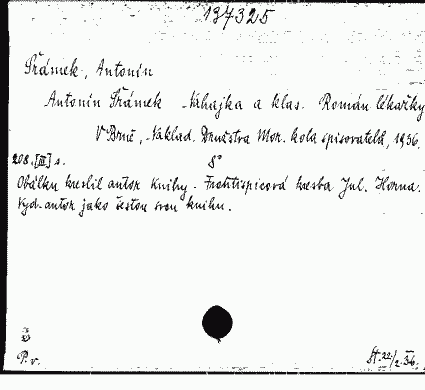 137325
Šrámek, Antonín
Antonín Šrámek Nahajka a klas. Román lékařky
V Brně, Náklad. Družstva Mor. kola spisovatelů, 1936.
208, [III] s. 8°
Obálku kreslil autor knihy. Frontispicová kresba Jul. Horna.
Vyd. autor jako šestou svou knihu.
P. v. St. 22/2. 36.